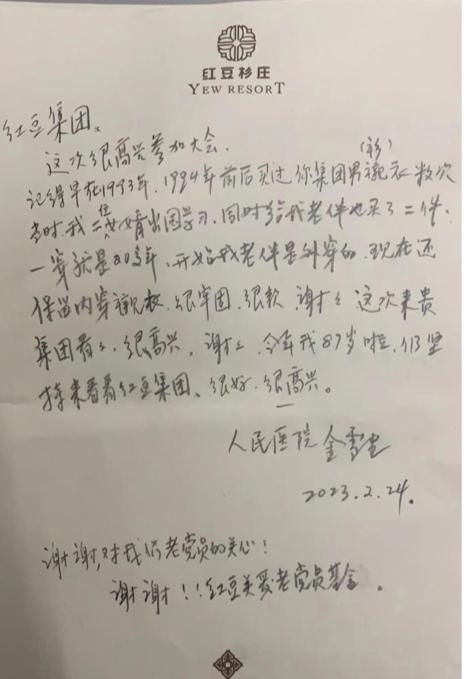 红豆杉庄
YEW RESORT
红豆集团、
这次很高兴参加大会.
(衫)
记得早在1993年,1994年前后买过你集团男衬衣数次
当时我二位女婿出国学习,同时给我老伴也买了二件.
一穿就是80多年,开始我老伴是外穿的,现在还
保留内穿衬衣,很牢固,很软 谢々 这次来贵
集团看々,很高兴,谢々,今年我87岁啦,仍坚
持来看看红豆集团、很好.很高兴。
人民医院 金
2023.2.24.
谢谢,对我们老党员的关心!
谢谢!!红豆关爱老党员基金.